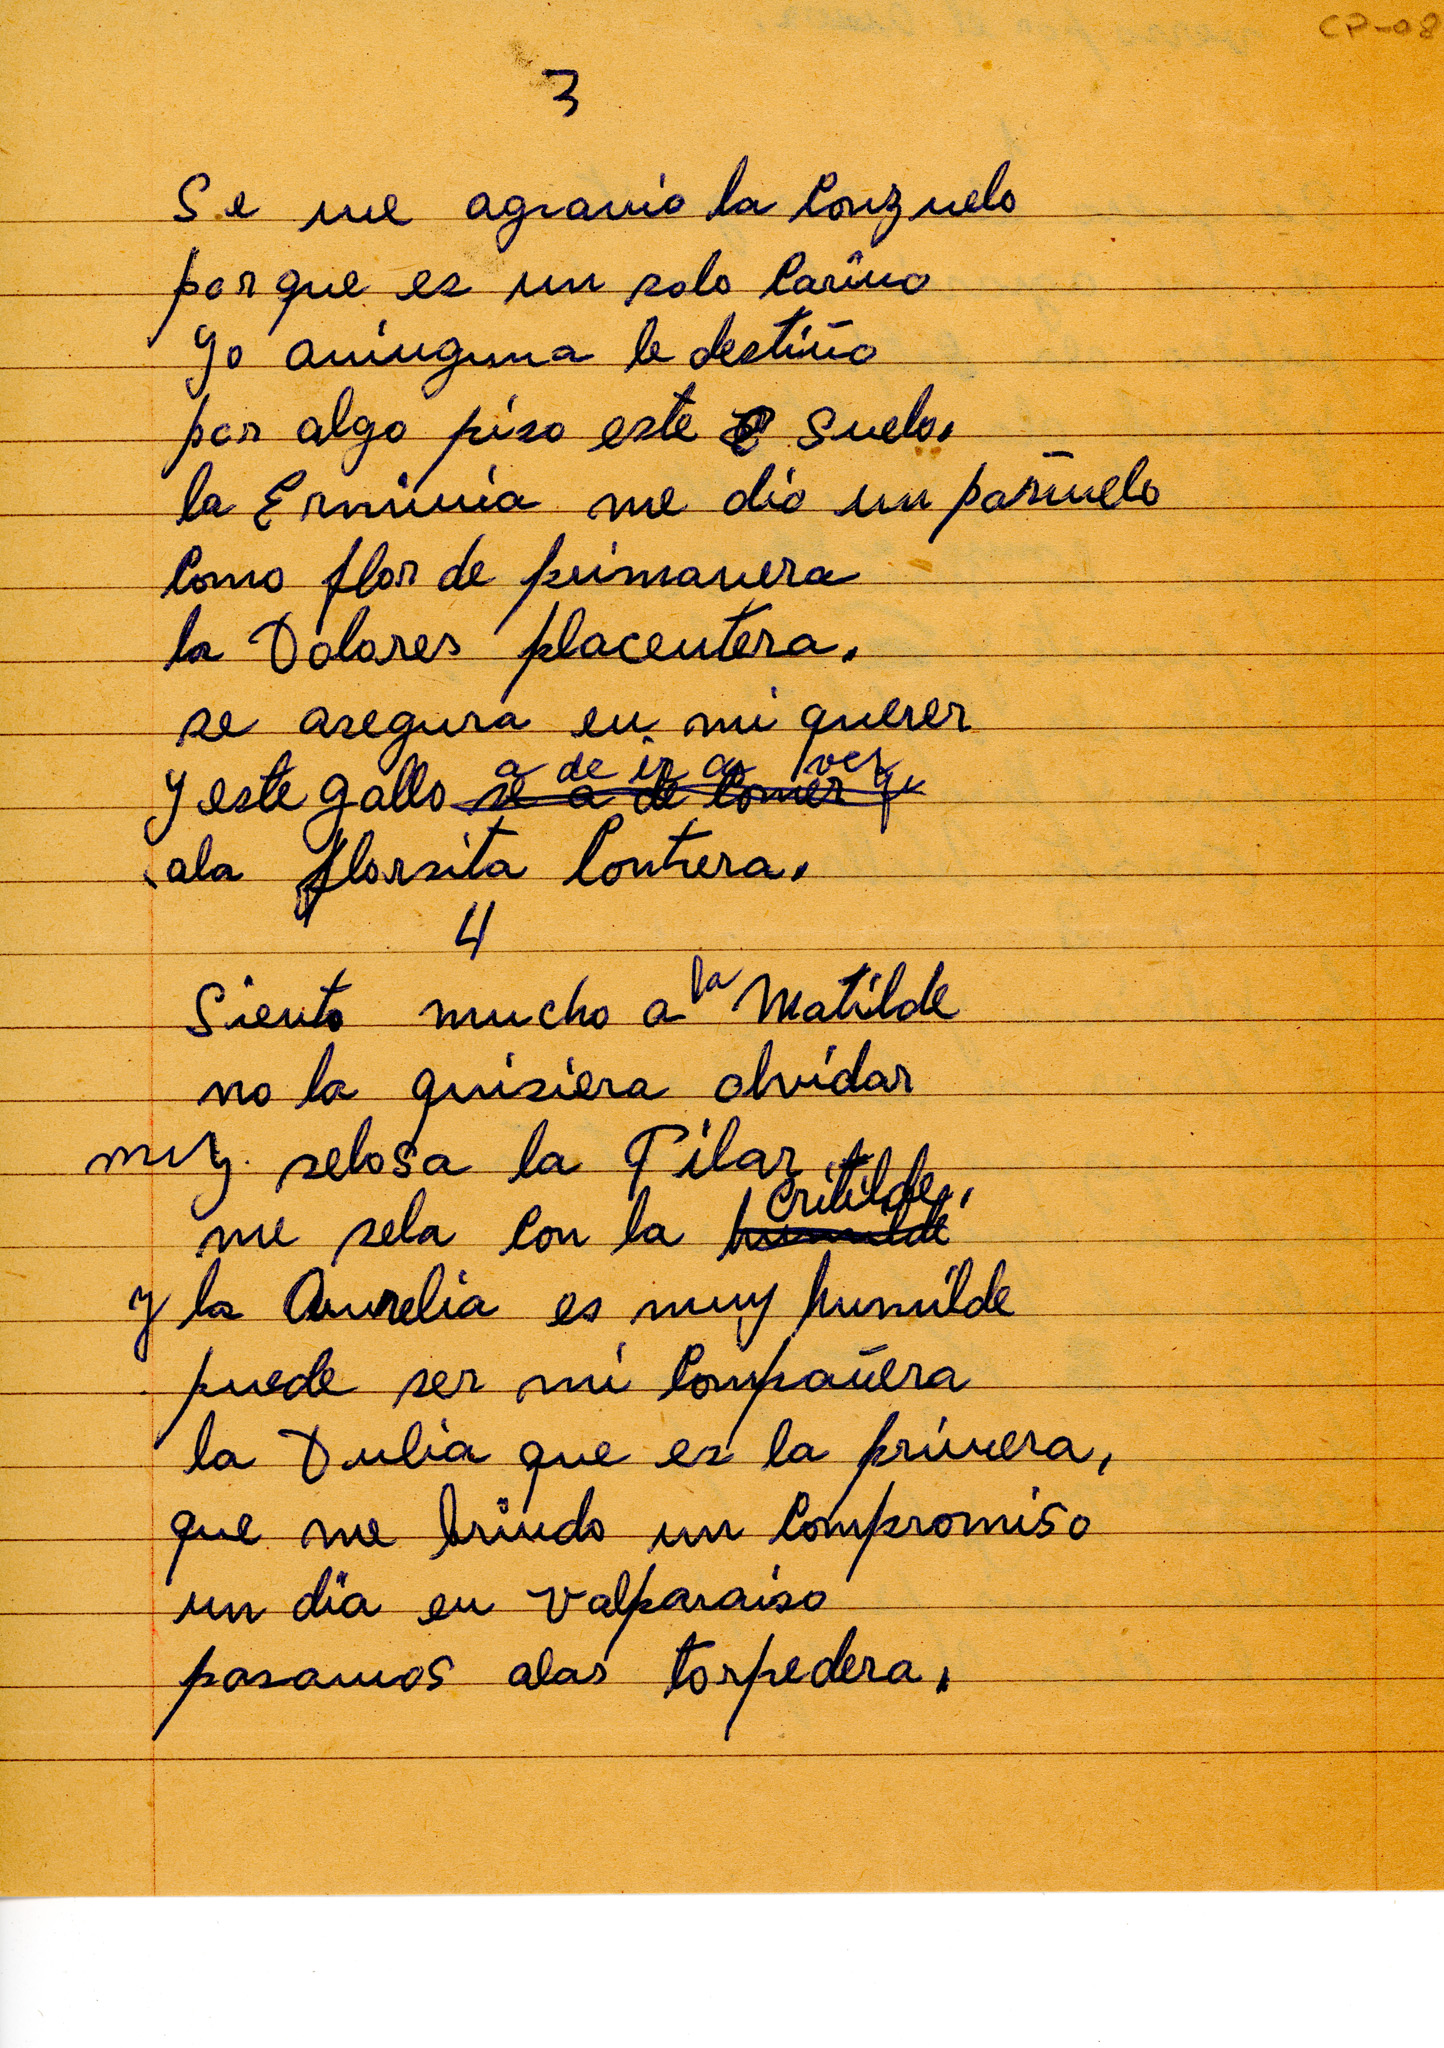 CP-08
3
Se me agravio la Conzuelo
porque es un solo Cariño
Yo aninguna le destiño
por algo piso este suelo.
la Erminia me dio un pañuelo
Como flor de primavera
la Dolores placentera.
se asegura en mi querer
y este gallo a de ir a ver
se a de Comer
ala florsita Contrera.
4
Siento mucho a la Matilde
no la quisiera olvidar
muy selosa la Pilar
me sela con la Critilde.
humilde
y la Aurelia es muy humilde
puede ser mi Compañera
la Dulia que es la primera,
que me brindo un Compromiso
un dia en Valparaiso
pasamos alas torpedera.